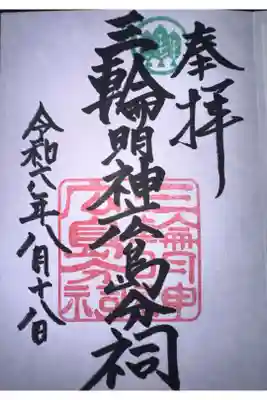 奉拝
三輪明神広島分祠
令和六年八月十八日
三輪明神
広島分祠